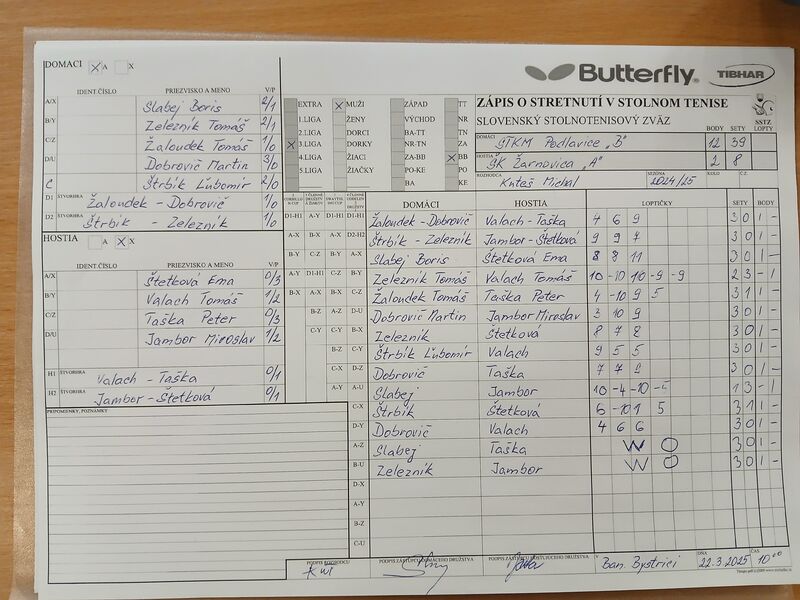 DOMACI X A X
IDENT.ČÍSLO PRIEZVISKO A MENO V/P
A/X Slabej Boris 2/1
B/Y Zelezník Tomáš 2/1
C/Z Žaloudek Tomáš 1/0
D/U Dobrovič Martin 3/0
C Štrbík Ľubomír 2/0
D1 ŠTVORHRA Žaloudek - Dobrovič 1/0
D2 ŠTVORHRA Štrbík - Zelezník 1/0
HOSTIA A X X
IDENT.ČÍSLO PRIEZVISKO A MENO V/P
A/X Štetková Ema 0/3
B/Y Valach Tomáš 1/2
C/Z Taška Peter 0/3
D/U Jambor Miroslav 1/2
H1 ŠTVORHRA Valach - Taška 0/1
H2 ŠTVORHRA Jambor - Štetková 0/1
PRIPOMIENKY, POZNÁMKY
Butterfly TIBHAR
EXTRA X MUŽI ZÁPAD TT
1.LIGA ŽENY VÝCHOD NR
2.LIGA DORCI BA-TT TN
X 3.LIGA DORKY NR-TN ZA
4.LIGA ŽIACI ZA-BB X BB
5.LIGA ŽIAČKY PO-KE PO
BA KE
ZÁPIS O STRETNUTÍ V STOLNOM TENISE
SLOVENSKÝ STOLNOTENISOVÝ ZVÄZ
SSTZ
BODY SETY LOPTY
DOMÁCI ŠTKM Podlavice "B" 12 39
HOSTIA ŠK Žarnovica "A" 2 8
ROZHODCA Knteš Michal SEZÓNA 2024/25 KOLO Č.Z.
DOMÁCI HOSTIA LOPTIČKY SETY BODY
D1-H1 A-Y D1-H1 D1-H1 Žaloudek - Dobrovič Valach - Taška 4 6 9 3 0 1 -
A-X B-X A-X D2-H2 Štrbík - Zelezník Jambor - Štetková 9 9 7 3 0 1 -
B-Y C-Z B-Y A-X Slabej Boris Štetková Ema 8 8 11 3 0 1 -
A-Y D1-H1 C-Z B-Y Zelezník Tomáš Valach Tomáš 10 -10 10 -9 -9 2 3 - 1
B-X A-X B-X C-Z Žaloudek Tomáš Taška Peter 4 -10 9 5 3 1 1 -
B-Z A-Z D-U Dobrovič Martin Jambor Miroslav 3 10 9 3 0 1 -
C-Y C-Y B-X Zelezník Štetková 8 7 8 3 0 1 -
B-Z C-Y Štrbík Ľubomír Valach 9 5 5 3 0 1 -
C-X D-Z Dobrovič Taška 7 7 9 3 0 1 -
A-Y A-U Slabej Jambor 10 -4 -10 -5 1 3 - 1
C-X Štrbík Štetková 6 -10 1 5 3 1 1 -
D-Y Dobrovič Valach 4 6 6 3 0 1 -
A-Z Slabej Taška W O 3 0 1 -
B-U Zelezník Jambor W O 3 0 1 -
D-X
A-Y
B-Z
C-U
PODPIS ROZHODCU PODPIS ZÁSTUPCU DOMÁCEHO DRUŽSTVA PODPIS ZÁSTUPCU HOSŤUJÚCEHO DRUŽSTVA V Ban. Bystrici DŇA 22.3.2025 ČAS 10 00